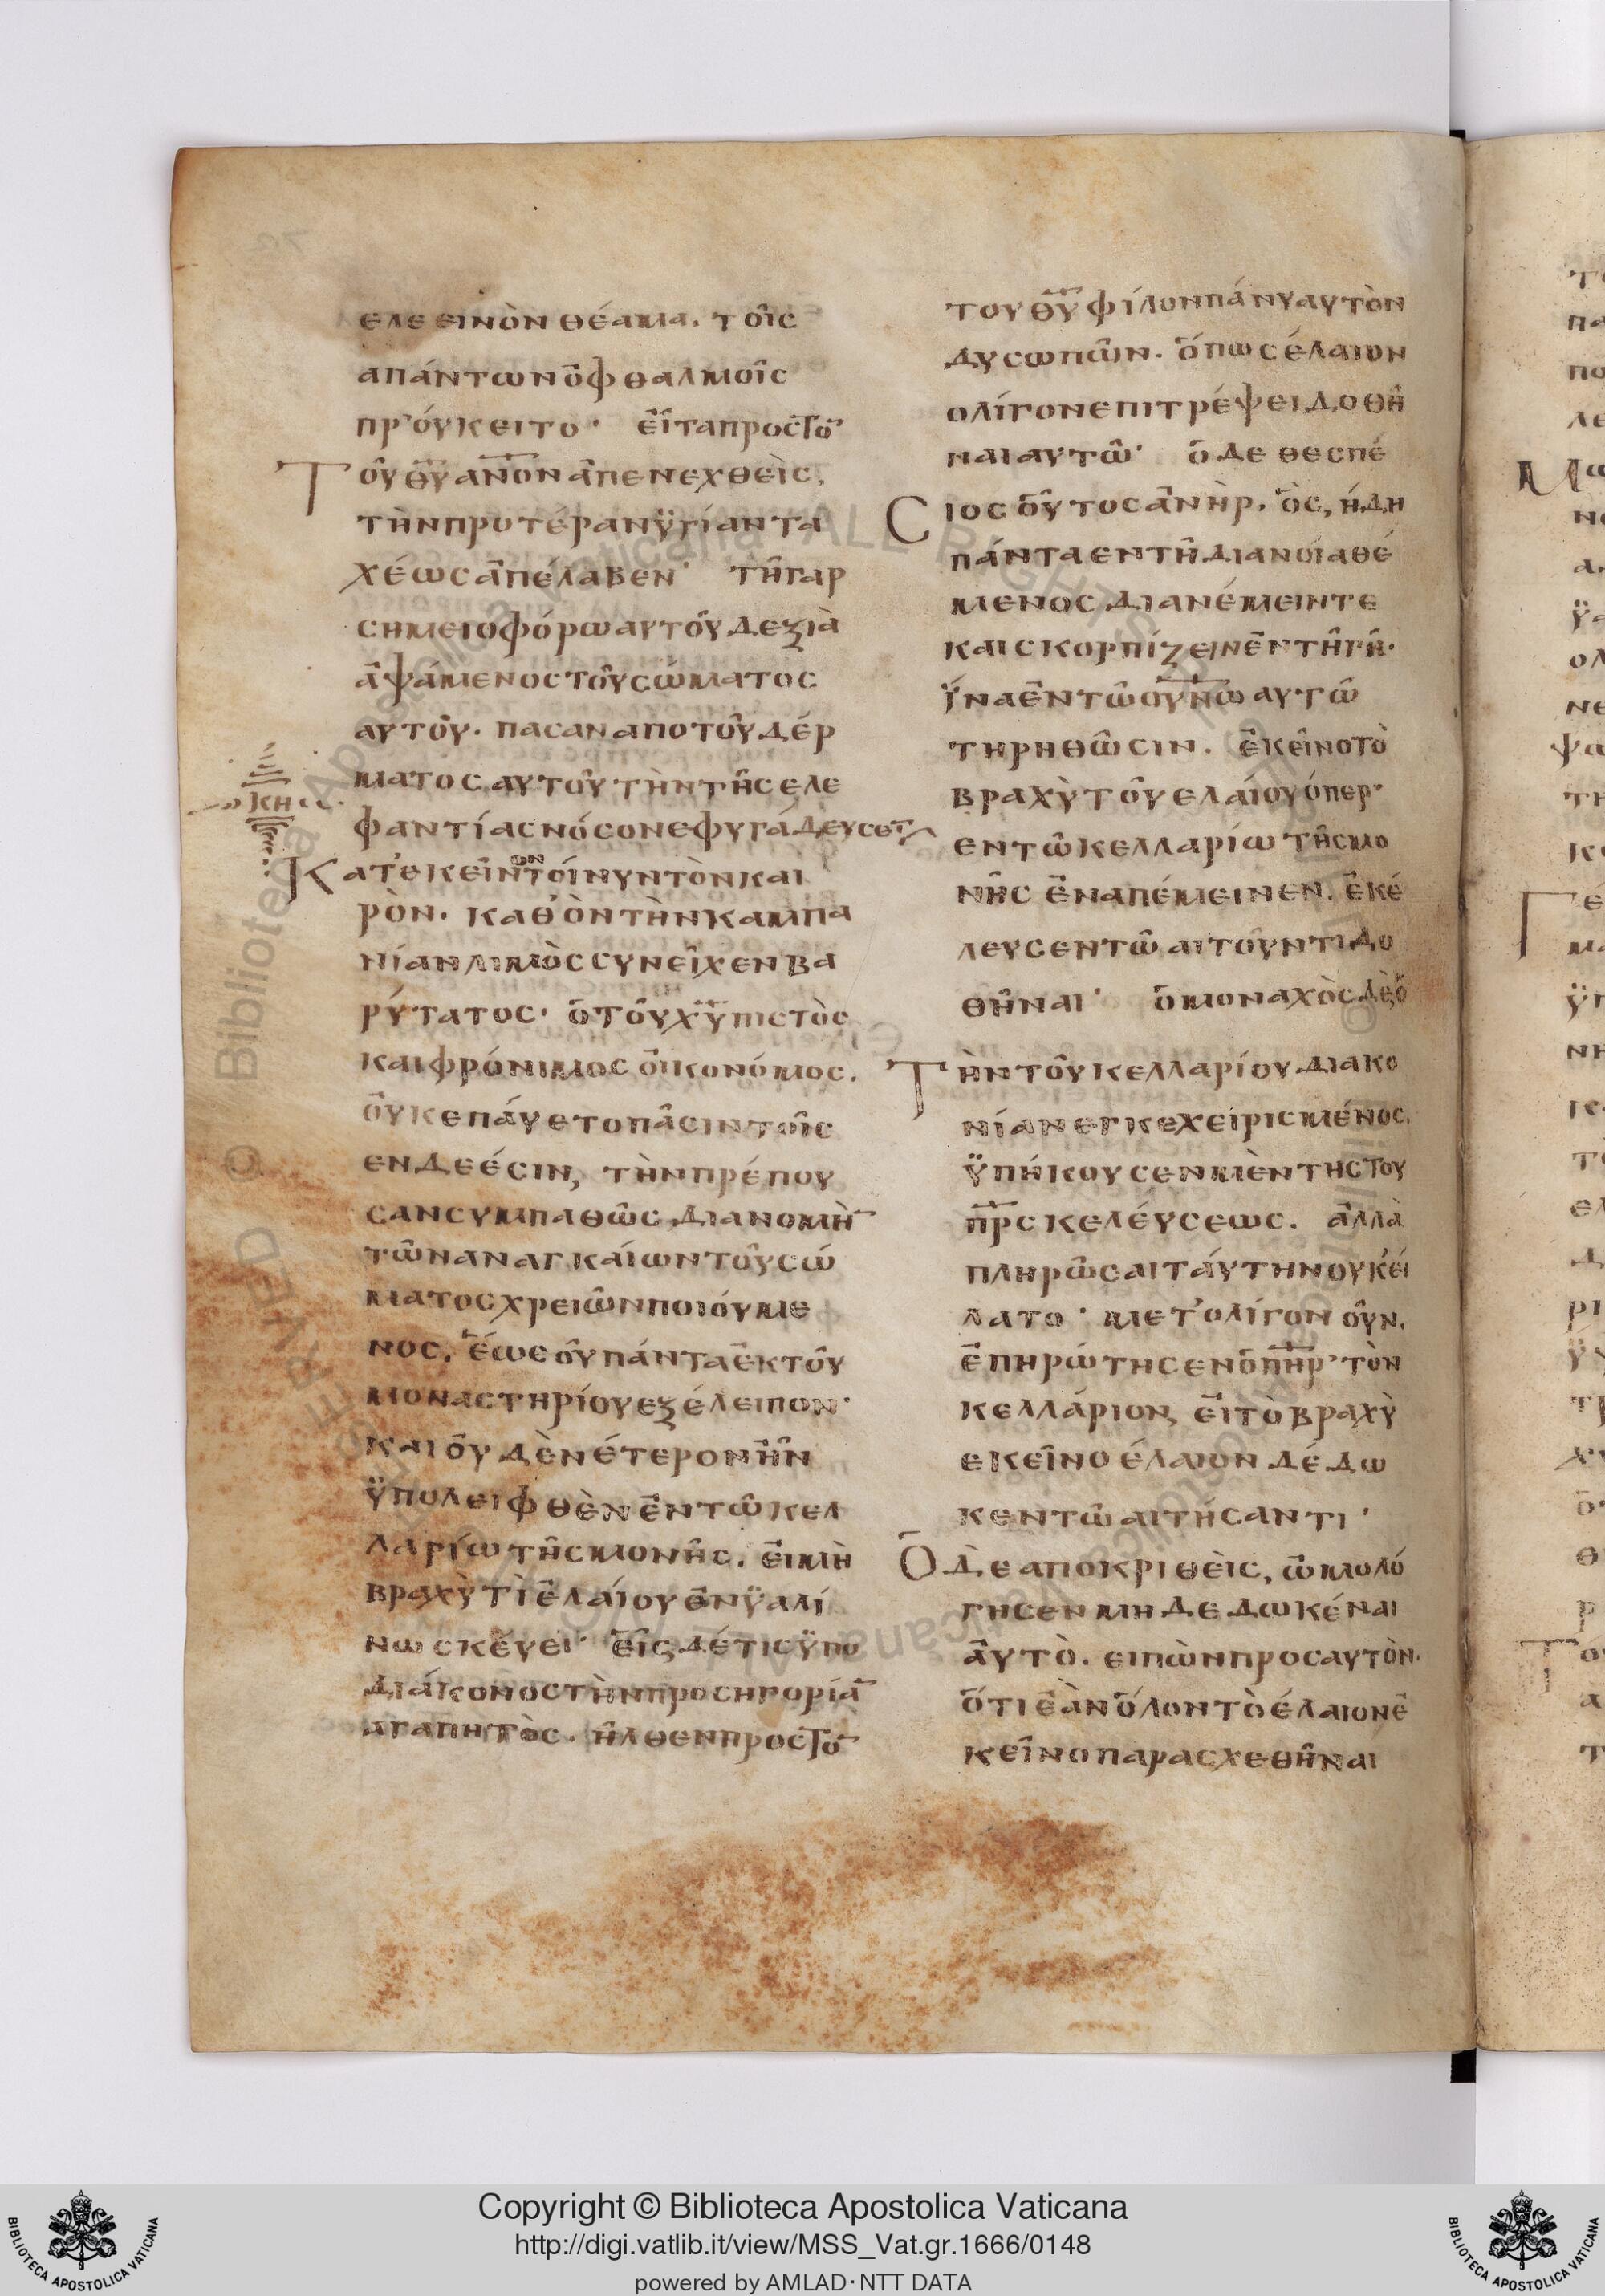 ελεεινὸν θέαμα. τοῖς
απάντων ὀφθαλμοῖς
πρ'όυκειτο· εἶτα προς το̅
Τοῦ θ̅υ̅ αν̅ο̅ν ἀπενεχθεὶς.
τὴν προτέραν ϋγίαν τα
χέως ἀπέλαβεν· τῆ γαρ
σημειοφόρω αυτοῦ δεξιὰ
ἁψάμενος τοῦ σώματος
αυτοῦ. πασαν απο τοῦ δέρ
ματος αυτοῦ τὴν τῆς ελε
φαντίας νόσον εφυγάδευσεν
Κατ'εκεῖνον τοίνυν τὸν και
ρὸν. καθ'ὸν τὴν καμπα
νίαν λιμὸς συνεῖχεν βα
ρύτατος. ὁ τοῦ χ̅υ̅ πιστὸς
και φρόνιμος οἰκονόμος.
οὐκ επάυετο πᾶσιν τοῖς
ενδεέσιν, τὴν πρέπου
σαν συμπαθῶς διανομὴ̅
τῶν αναγκάιων τοῦ σώ
ματος χρειῶν ποιόυμε
νος. ἕως οὗ πάντα ἐκ τοῦ
μοναστηρίου εξέλειπον·
και οὐδὲν έτερον ἦν
ϋπολειφθὲν ἐν τῶ κελ
λαρίω τῆς μονῆς. εἰ μὴ
βραχὺ τὶ ἐλάιου ἐν ϋαλί
νω σκέυει· εἷς δέ τις ϋπο
διάκονος τὴν προσηγορία̅
αγαπητὸς. ἦλθεν προς το̅
του θ̅υ̅ φίλον πάνυ αυτὸν
δυσωπῶν. ὅπως έλαιον
ολίγον επιτρέψει δοθῆ
ναι αυτῶ· ὁ δε θεσπέ
Σιος οὗτος ἀνὴρ. ὃς, ήδη
πάντα εν τῆ διανοία θέ
μενος διανέμειν τε
και σκορπίζειν ἐν τῆ γῆ.
ΐνα ἐν τῶ ου̅ν̅ω̅ αυτῶ
τηρηθῶσιν. ἐκεῖνο τὸ
βραχὺ τοῦ ελαίου όπερ
εν τῶ κελλαρίω τῆς μο
νῆς ἐναπέμεινεν. ἐκέ
λευσεν τῶ αιτοῦντι δο
θῆναι· ὁ μοναχὸς δὲ ὁ
Τὴν τοῦ κελλαρίου διακο
νίαν εγκεχειρισμένος.
ϋπήκουσεν μὲν της του
π̅ρ̅ς κελέυσεως. ἀλλὰ
πληρῶσαι τάυτην ουκ έι
λατο· μετ'ολίγον οὖν.
ἐπηρώτησεν ὁ π̅η̅ρ̅ τὸν
κελλάριον, εἰ τὸ βραχὺ
εκεῖνο έλαιον δέδω
κεν τῶ αιτήσαντι·
Ὁ δε αποκριθεὶς, ὡμολό
γησεν μη δεδωκέναι
ἀυτὸ. ειπὼν προς αυτὸν.
ὅτι ἐὰν ὅλον τὸ έλαιον ἐ
κεῖνο παρασχεθῆναι
Copyright © Biblioteca Apostolica Vaticana
http://digi.vatlib.it/view/MSS_Vat.gr.1666/0148
powered by AMLAD·NTT DATA
BIBLIOTECA APOSTOLICA VATICANA
BIBLIOTECA APOSTOLICA VATICANA